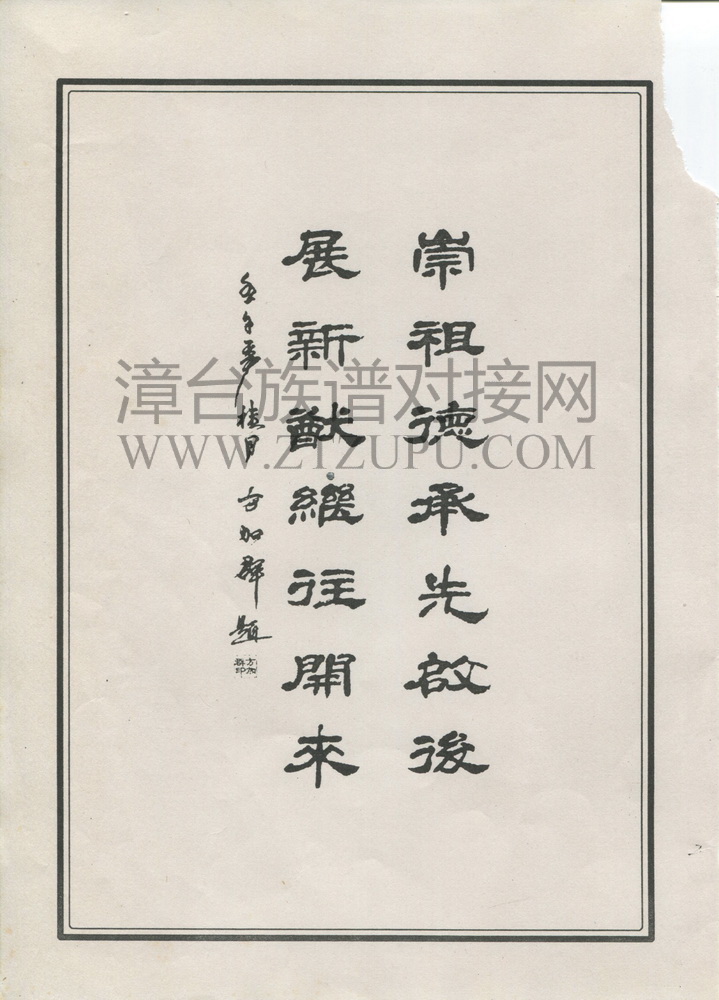 崇祖德承先啟後
展新猷繼往開來
桂月 方加群 題
方加群印
漳台族谱对接网
WWW.ZTZUPU.COM